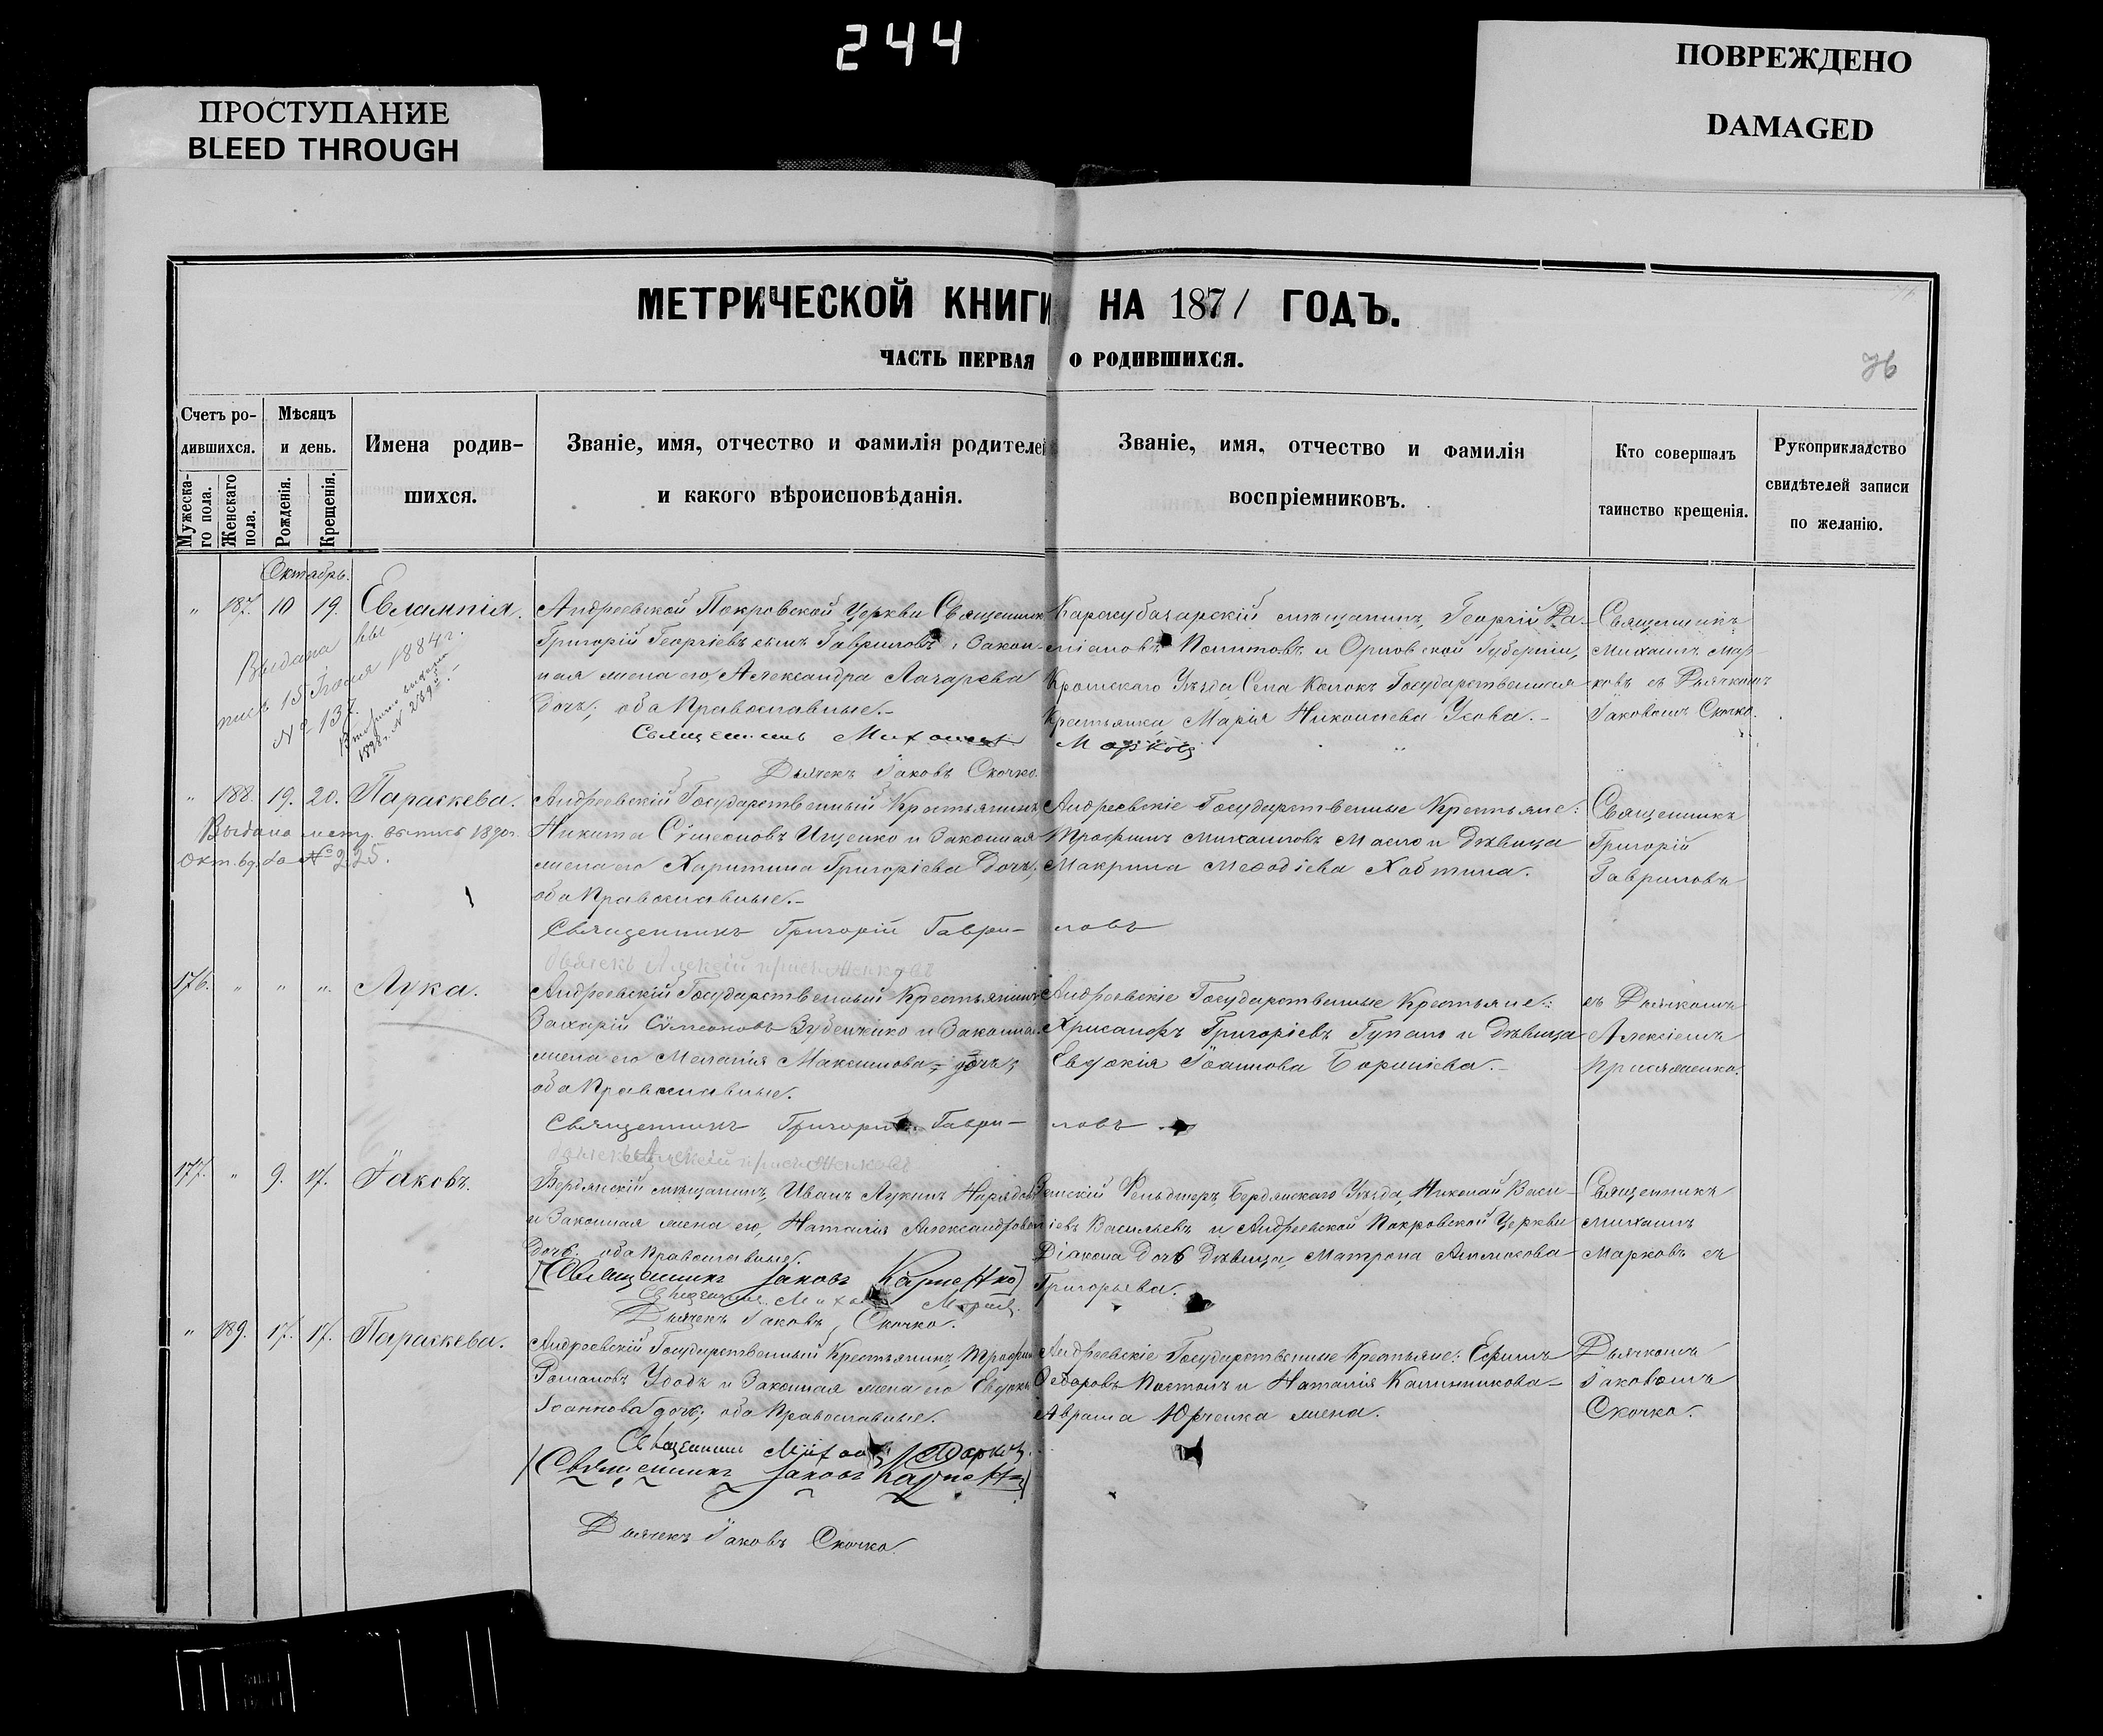 244
ПРОСТУПАНИЕ
BLEED THROUGH
ПОВРЕЖДЕНО
DAMAGED
МЕТРИЧЕСКОЙ КНИГИ НА 1871 ГОДЪ.
ЧАСТЬ ПЕРВАЯ О РОДИВШИХСЯ.
76
Счетъ ро-
дившихся.
Мужеска-
го пола.
Женскаго
пола.
Мѣсяцъ
и день.
Рожденія.
Крещенія.
Имена родив-
шихся.
Званіе, имя, отчество и фамилія родителей
и какого вѣроисповѣданія.
Званіе, имя, отчество и фамилія
воспріемниковъ.
Кто совершалъ
таинство крещенія.
Рукоприкладство
свидѣтелей записи
по желанію.
Октябрь.
" 187. 10 19. Евлампія.
Выдана вы
пись 15 Іюля 1884 г.
№ 137.
Вторично выдана
1898 г. №
Андреевской Покровской Церкви Священник
Григорій Георгіевъ сынъ Гавриловъ и Закон-
ная жена его, Александра Лазарева
дочь; оба Православные.-
Карасубазарскій мѣщанинъ, Георгій Да-
міановъ и Орловской Губерніи,
Кромскаго Уѣзда, Села Государственная
Крестьянка Марія Николаева Усова.-
Священникъ
Михаилъ Мар-
ковъ съ Дьячкомъ
Іаковомъ Скочко.
Священникъ Михаилъ Марковъ
Дьячекъ Іаковъ Скочко.
" 188. 19. 20. Параскева.
Выдана метр. выпись 1890 г.
Окт. 6 д. за № 225.
Андреевскій Государственный Крестьянинъ,
Никита Сѵмеоновъ Ищенко и Законная
жена его Харитина Григоріева дочь;
оба Православные.-
Андреевскіе Государственные Крестьяне:
Трофимъ Михаиловъ Масло и Дѣвица
Макрина Меѳодіева
Священникъ
Григорій
Гавриловъ
Священникъ Григорій Гаври- ловъ
Дьячекъ Алексій
176. " " " Лука.
Андреевскій Государственный Крестьянинъ
Захарій Сѵмеоновъ и Законная
жена его Меланія Максимова дочь;
оба Православные.
Андреевскіе Государственные Крестьяне:
Хрисанфъ Григоріевъ и Дѣвица
Евдокія Іоаннова
съ Дьячкомъ
Алексіемъ
Присяженко.
Священникъ Григорій Гаври- ловъ
Дьячекъ Алексій
177. " 9. 17. Іаковъ.
Бердянскій мѣщанинъ, Иванъ Лукинъ
и Законная жена его, Наталія Александрова
дочь. оба Православные.
Земскій Фельдшеръ, Бердянскаго Уѣзда, Николай Васи-
ліевъ Васильевъ и Андреевской Покровской Церкви
Діакона дочь Дѣвица, Матрона
Григорьева.
Священникъ
Михаилъ
Марковъ съ
Священникъ Іаковъ
Священникъ Михаилъ Марковъ.
Дьячекъ Іаковъ Скочко.
" 189. 17. 17. Параскева.
Андреевскій Государственный Крестьянинъ, Трофим
Романовъ Удодъ и Законная жена его
Іоаннова дочь; оба Православные.
Андреевскіе Государственные Крестьяне: Ефимъ
Ѳедоровъ и Наталія Калинникова-
Абрама Юрченка жена.
Дьячкомъ
Іаковомъ
Скочко.
Священникъ Михаилъ Марковъ.
Священникъ Іаковъ
Дьячекъ Іаковъ Скочко.